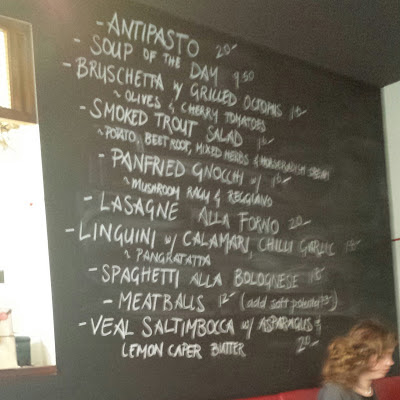 - ANTIPASTO 20-
- SOUP OF THE DAY 9.50
- BRUSCHETTA w/ GRILLED OCTOPUS
~ OLIVES & CHERRY TOMATOES
- SMOKED TROUT SALAD
~ POTATO, BEETROOT, MIXED HERBS & HORSERADISH CREAM
- PANFRIED GNOCCHI w/
~ MUSHROOM RAGU & REGGIANO
- LASAGNE ALLA FORNO 20-
- LINGUINI w/ CALAMARI, CHILLI GARLIC
& PANGRATATTA
- SPAGHETTI ALLA BOLOGNESE
- MEATBALLS (add soft polenta)
- VEAL SALTIMBOCCA w/ ASPARAGUS &
LEMON CAPER BUTTER 20-